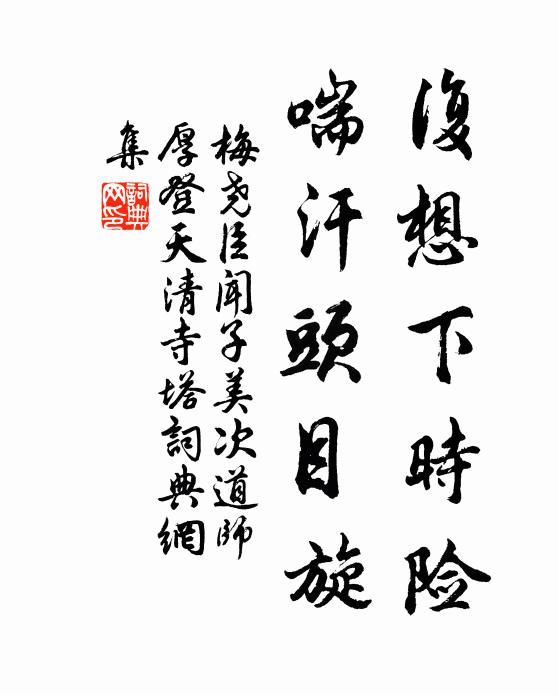 復想下時险
喘汗頭目旋
梅尧臣聞子美次道師
厚登天清寺塔詞典網
集
詞典
网印